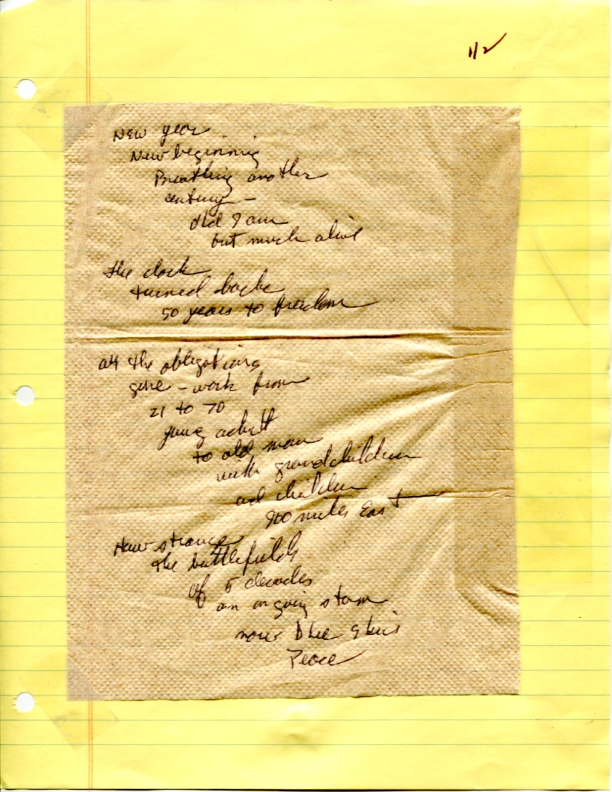 1/2
New year
New beginning
Breathing another
century –
old I am
but much alive
the clock
turned back
50 years to freedom
all the obligations
gone – work from
21 to 70
young adult
to old man
with grandchildren
and children
900 miles East
How strange
the battlefields
of 5 decades
an ongoing storm
now blue skies
Peace